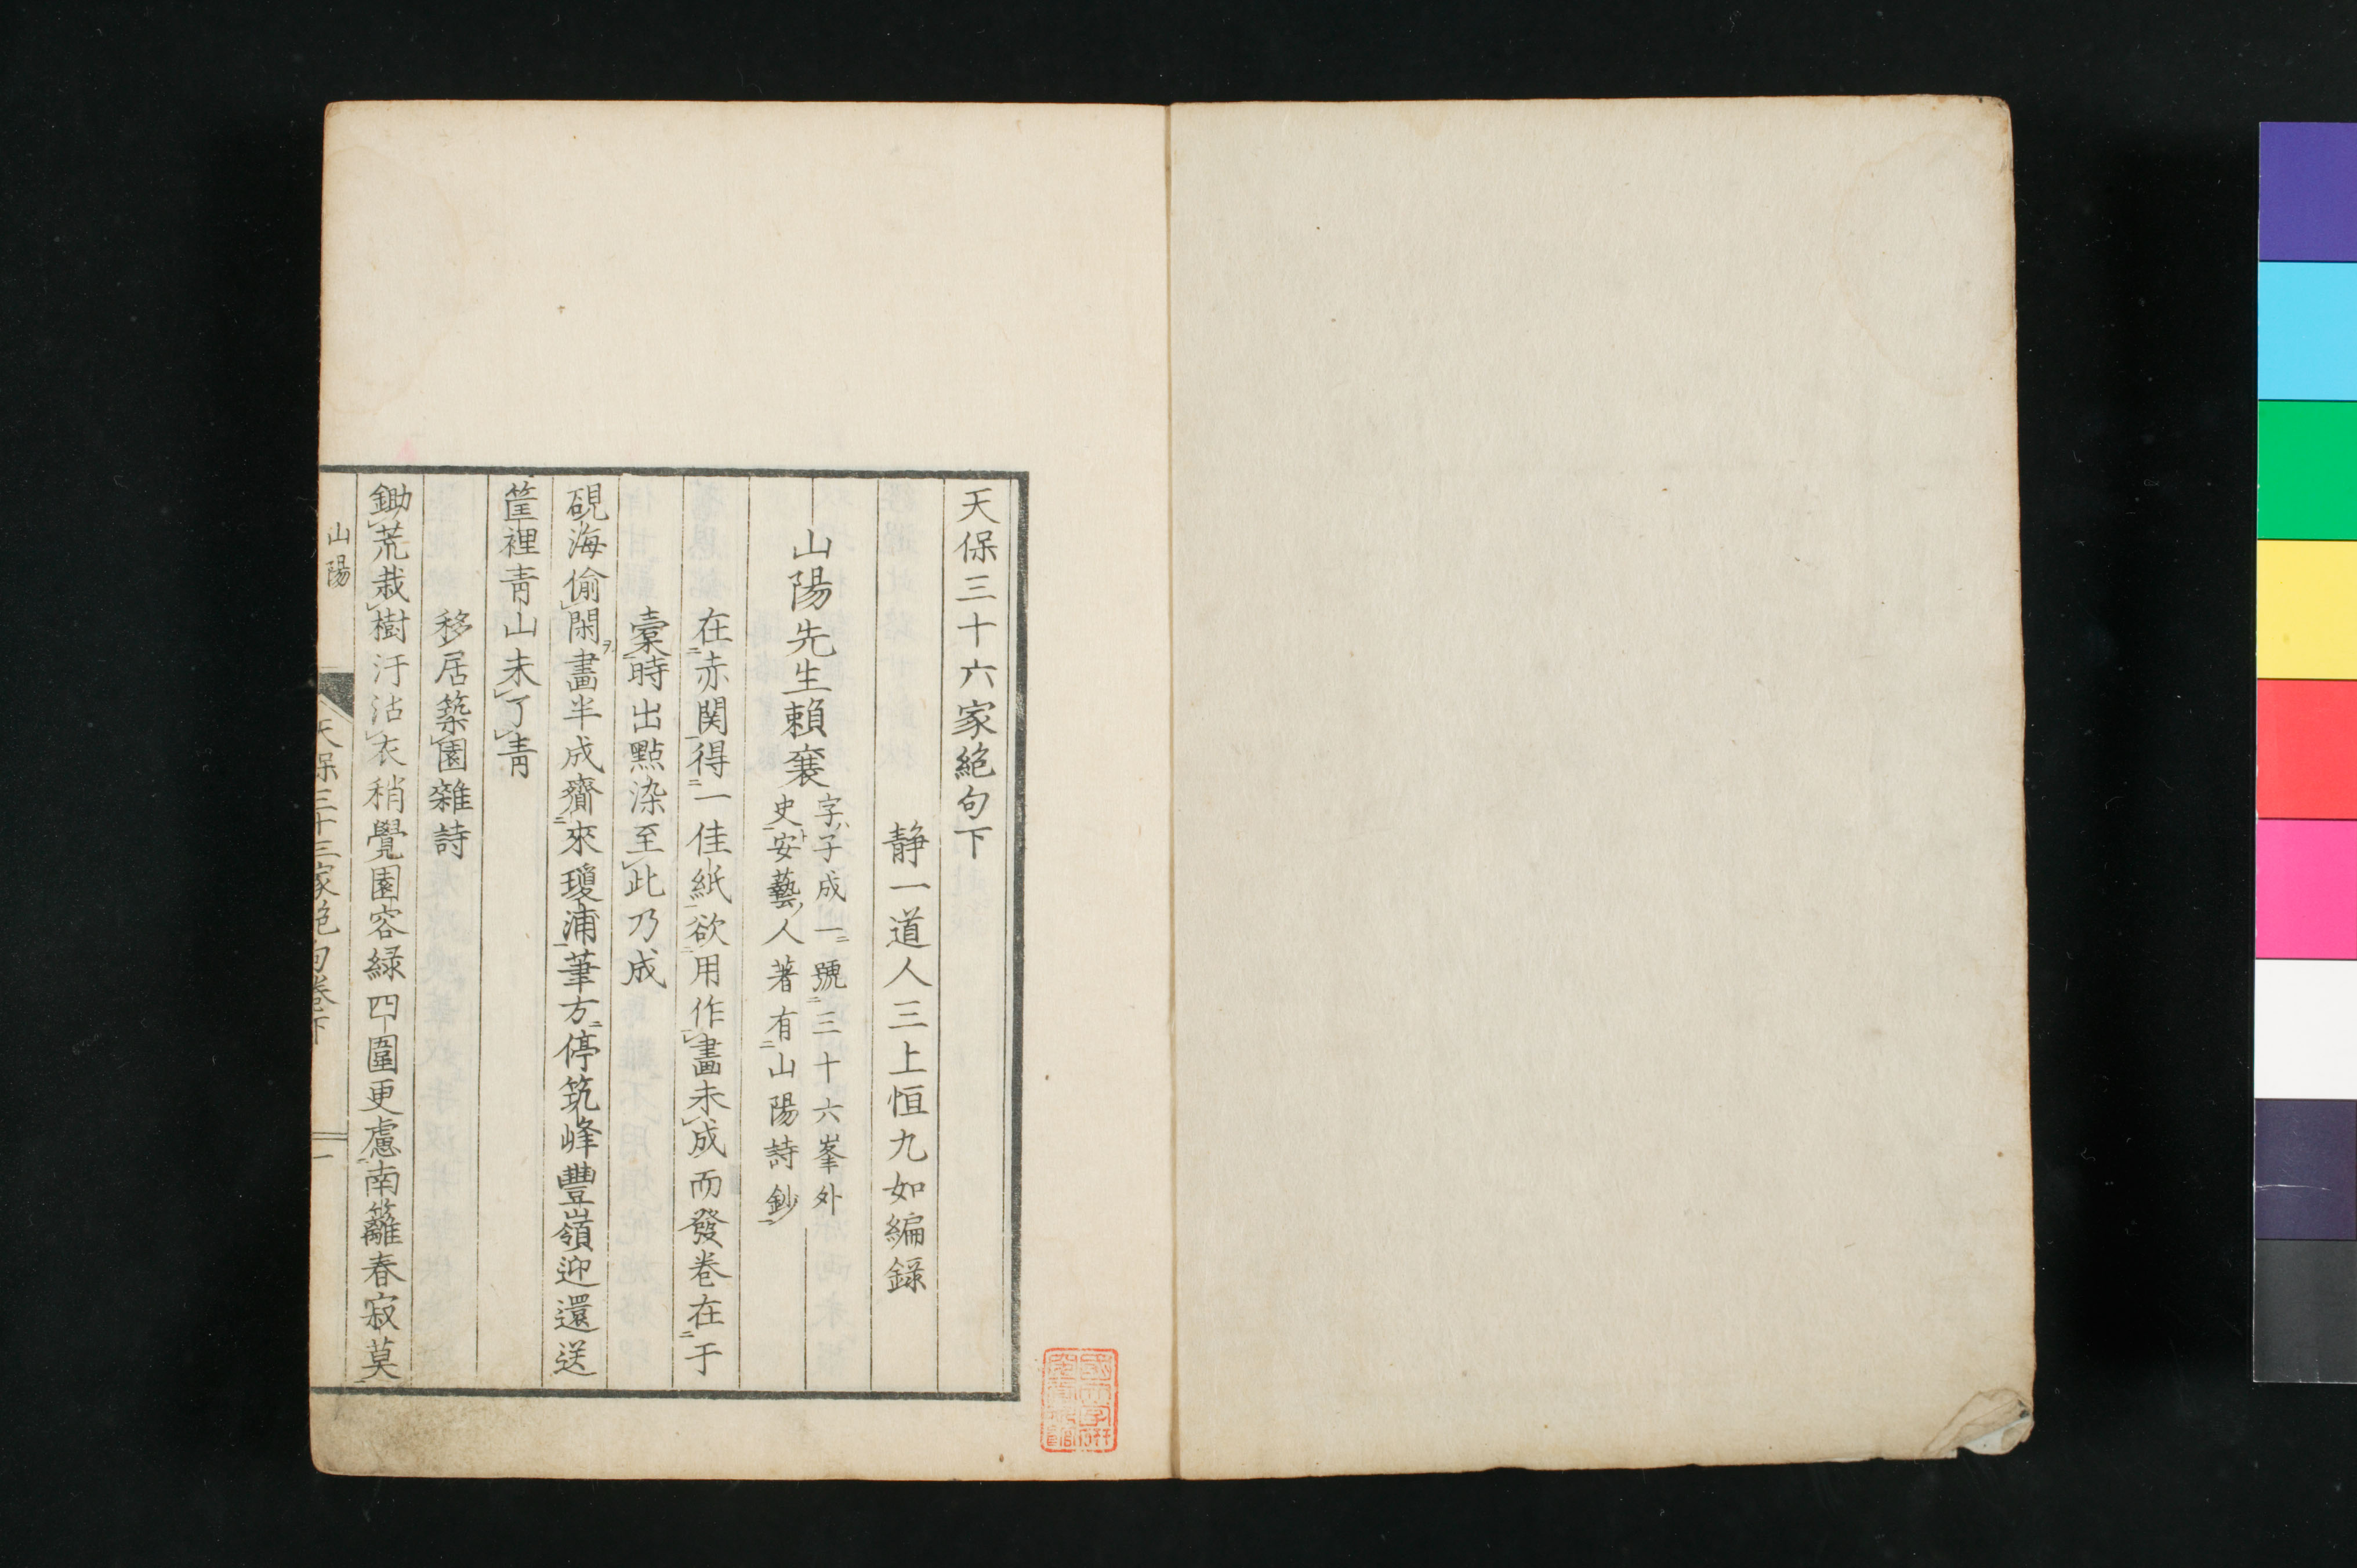 天保三十六家絶句下
静一道人三上恒九如編錄
山陽先生賴襄
字子成一號三十六峯外
史安藝人著有山陽詩鈔
在赤関得一佳紙欲用作畫未成而發巻在于
槖時出點染至此乃成
硯海偷閑畫半成齎來瓊浦筆方停筑峰豐嶺迎還送
篋裡靑山未了靑
移居築園雜詩
鋤荒栽樹汙沾衣稍覺園容緑四圍更慮南籬春寂莫
山陽
天保三十三家絶句巻下
一